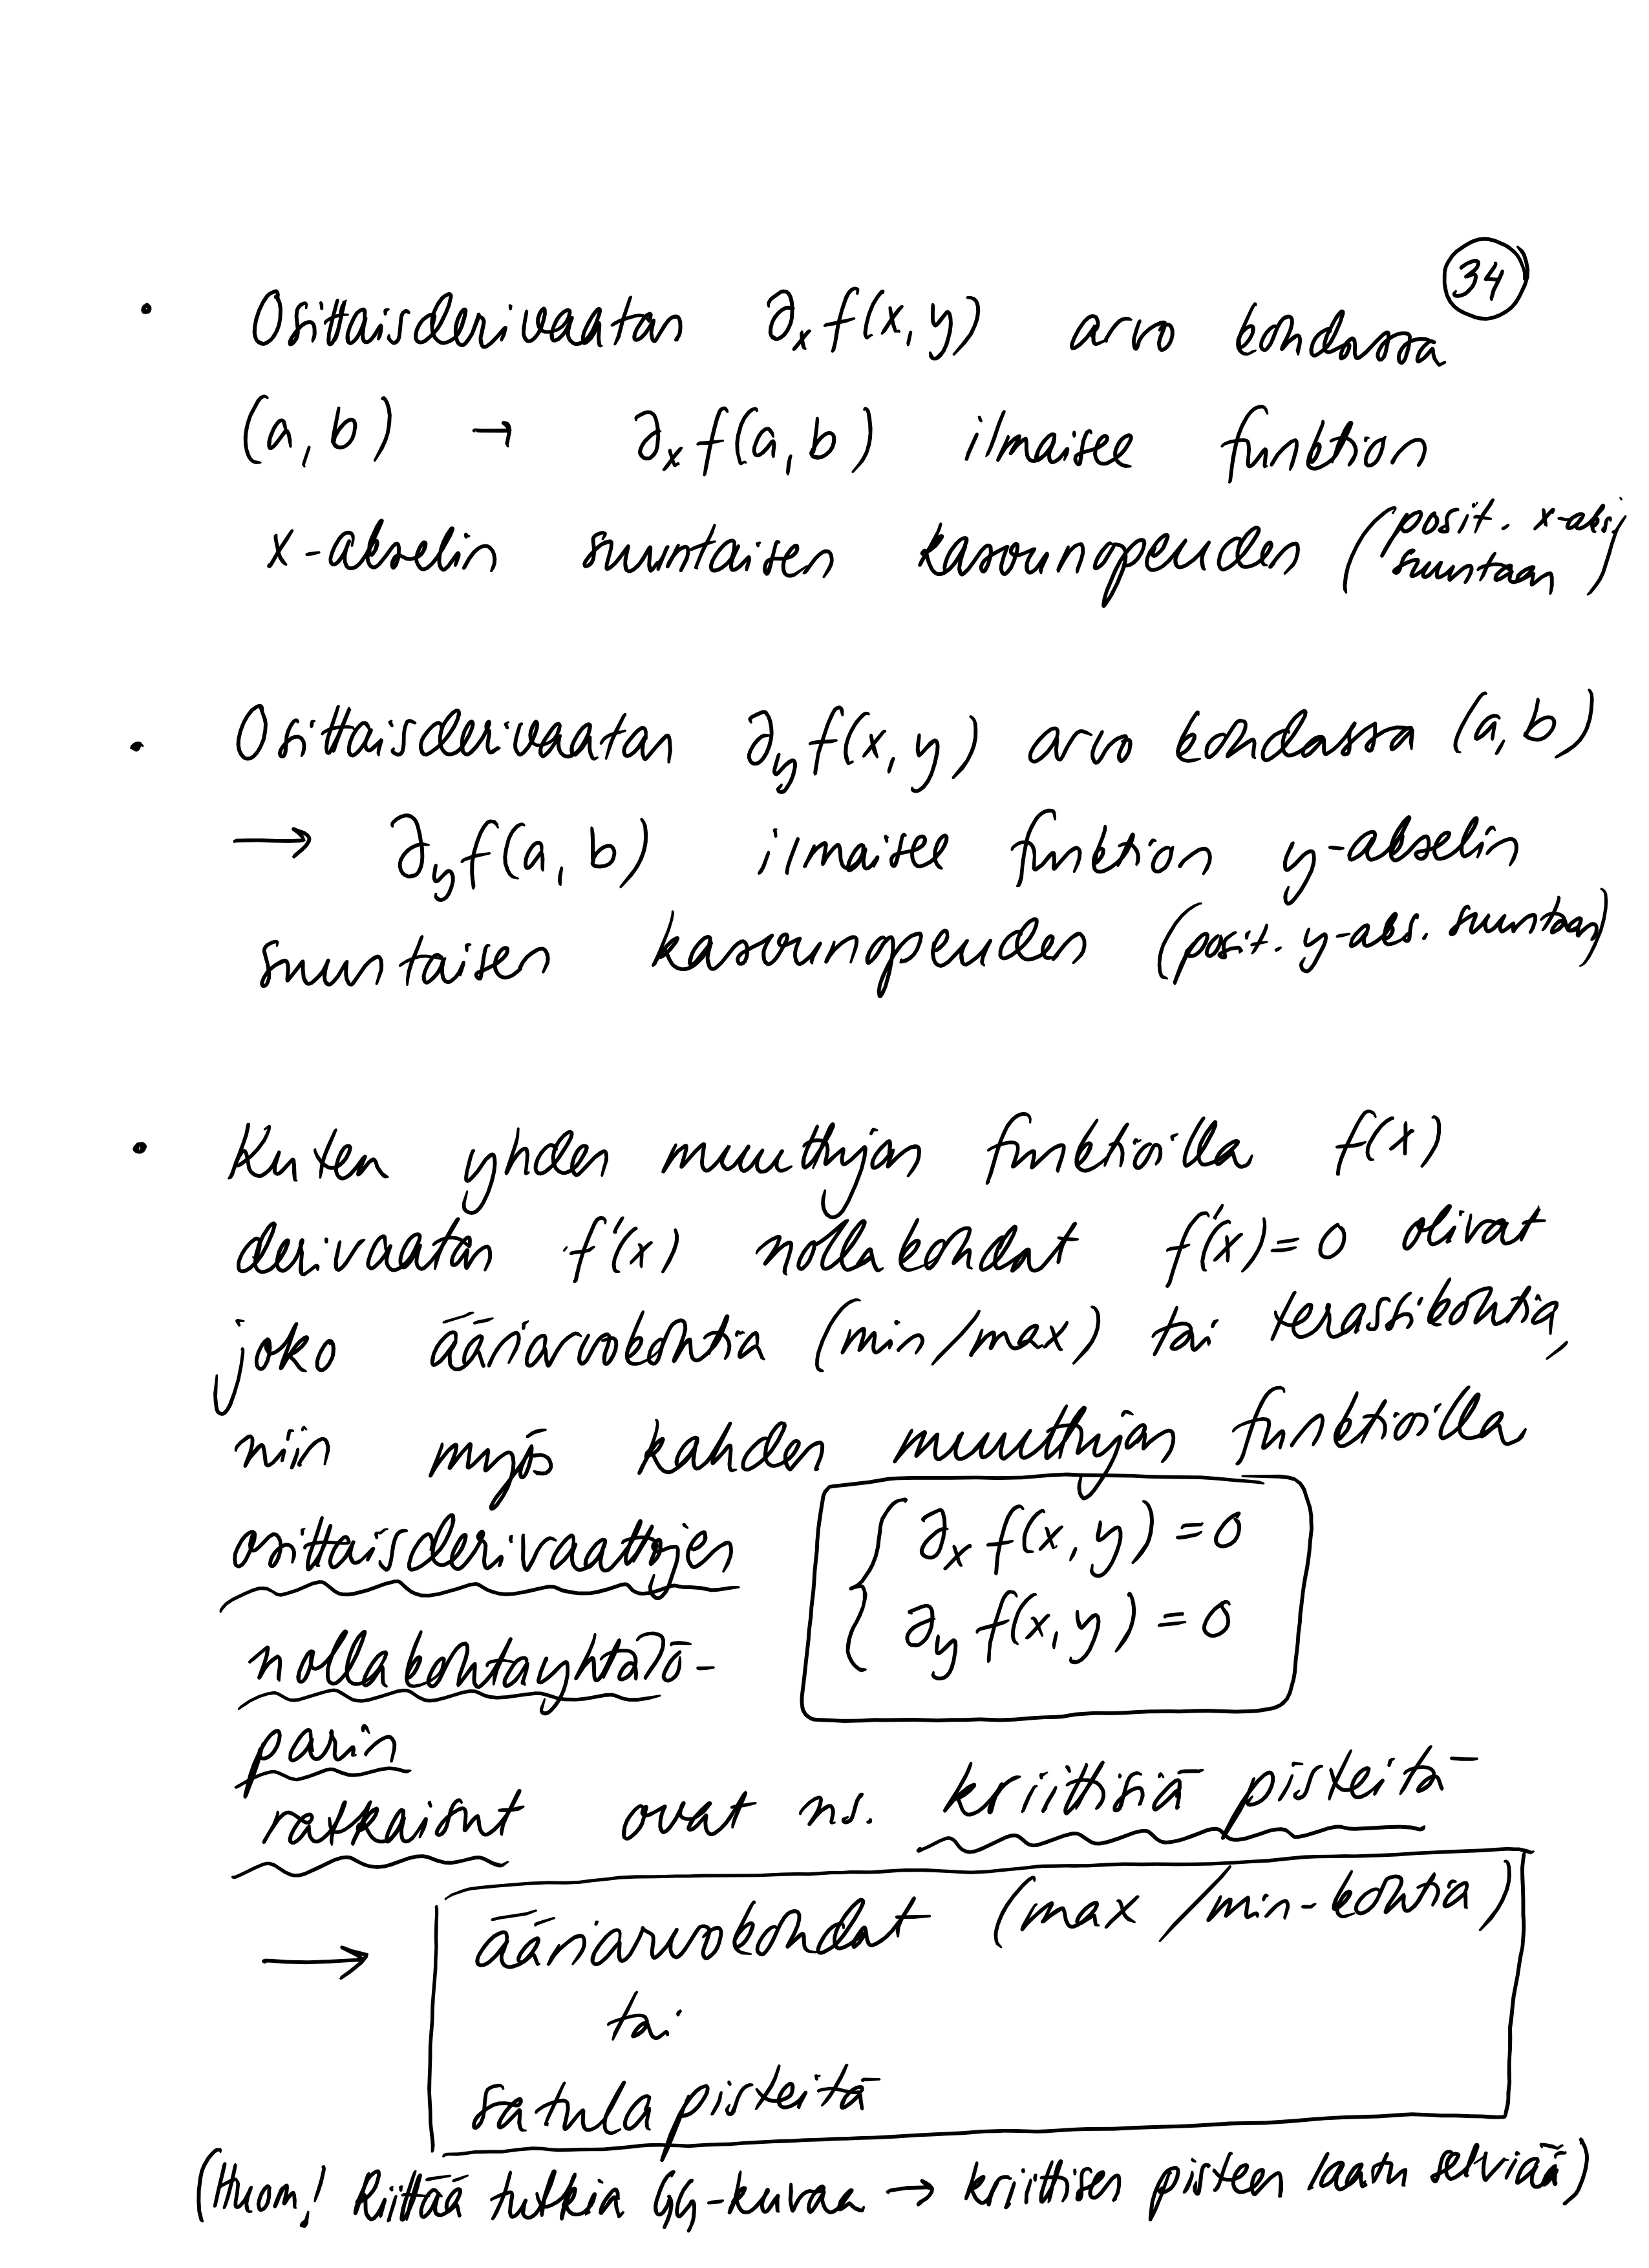 34
• Osittaisderivaatan ∂ₓf(x,y) arvo kohdassa
(a,b) → ∂ₓf(a,b) ilmaisee funktion
x-akselin suuntaisen kasvunopeuden (posit. x-aks.
suuntaan)
• Osittaisderivaatan ∂yf(x,y) arvo kohdassa (a,b)
→ ∂yf(a,b) ilmaisee funktion y-akselin
suuntaisen kasvunopeuden (posit. y-aks. suuntaan)
• Kuten yhden muuttujan funktioilla f(x)
derivaatan f'(x) nollakohdat f'(x)=0 olivat
joko ääriarvokohtia (min/max) tai terassikohtia,
niin myös kahden muuttujan funktioilla
osittaisderivaattojen { ∂ₓf(x,y)=0
∂yf(x,y)=0
nollakohtayhtälö-
parin
ratkaisut ovat ns. kriittisiä pisteitä
→ ääriarvokohdat (max/min-kohtia)
tai
satulapisteitä
(Huom! Riittää tutkia GG-kuvaa → kriittisen pisteen laatu selviää)